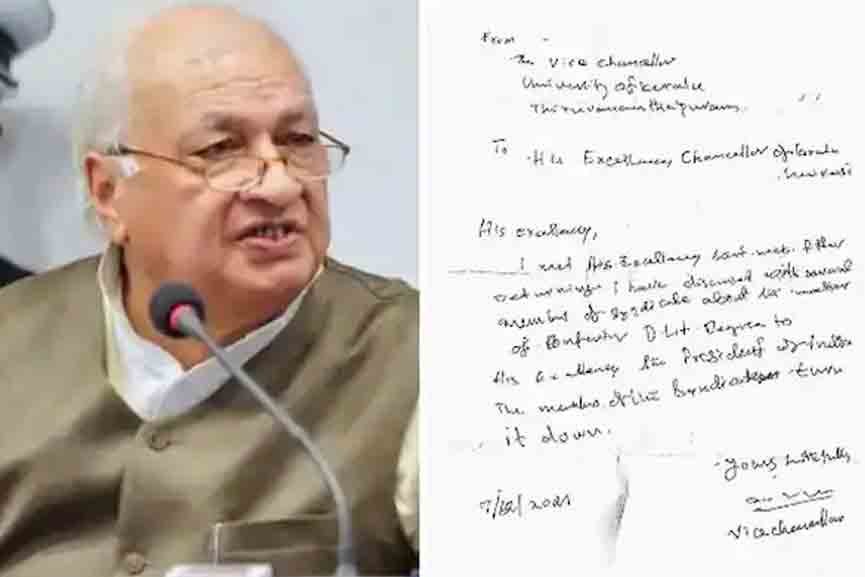 From
The Vice Chancellor
University of Kerala
Thiruvananthapuram.
To His Excellency Chancellor of Kerala
His Excellency,
I met His Excellency last week. After
returning I have discussed with several
member of Syndicate about the matter
of D.Lit Degree to
His Excellency the President of India
The members of the Syndicate turn
it down.
Yours faithfully
7/12/2021
Vice chancellor